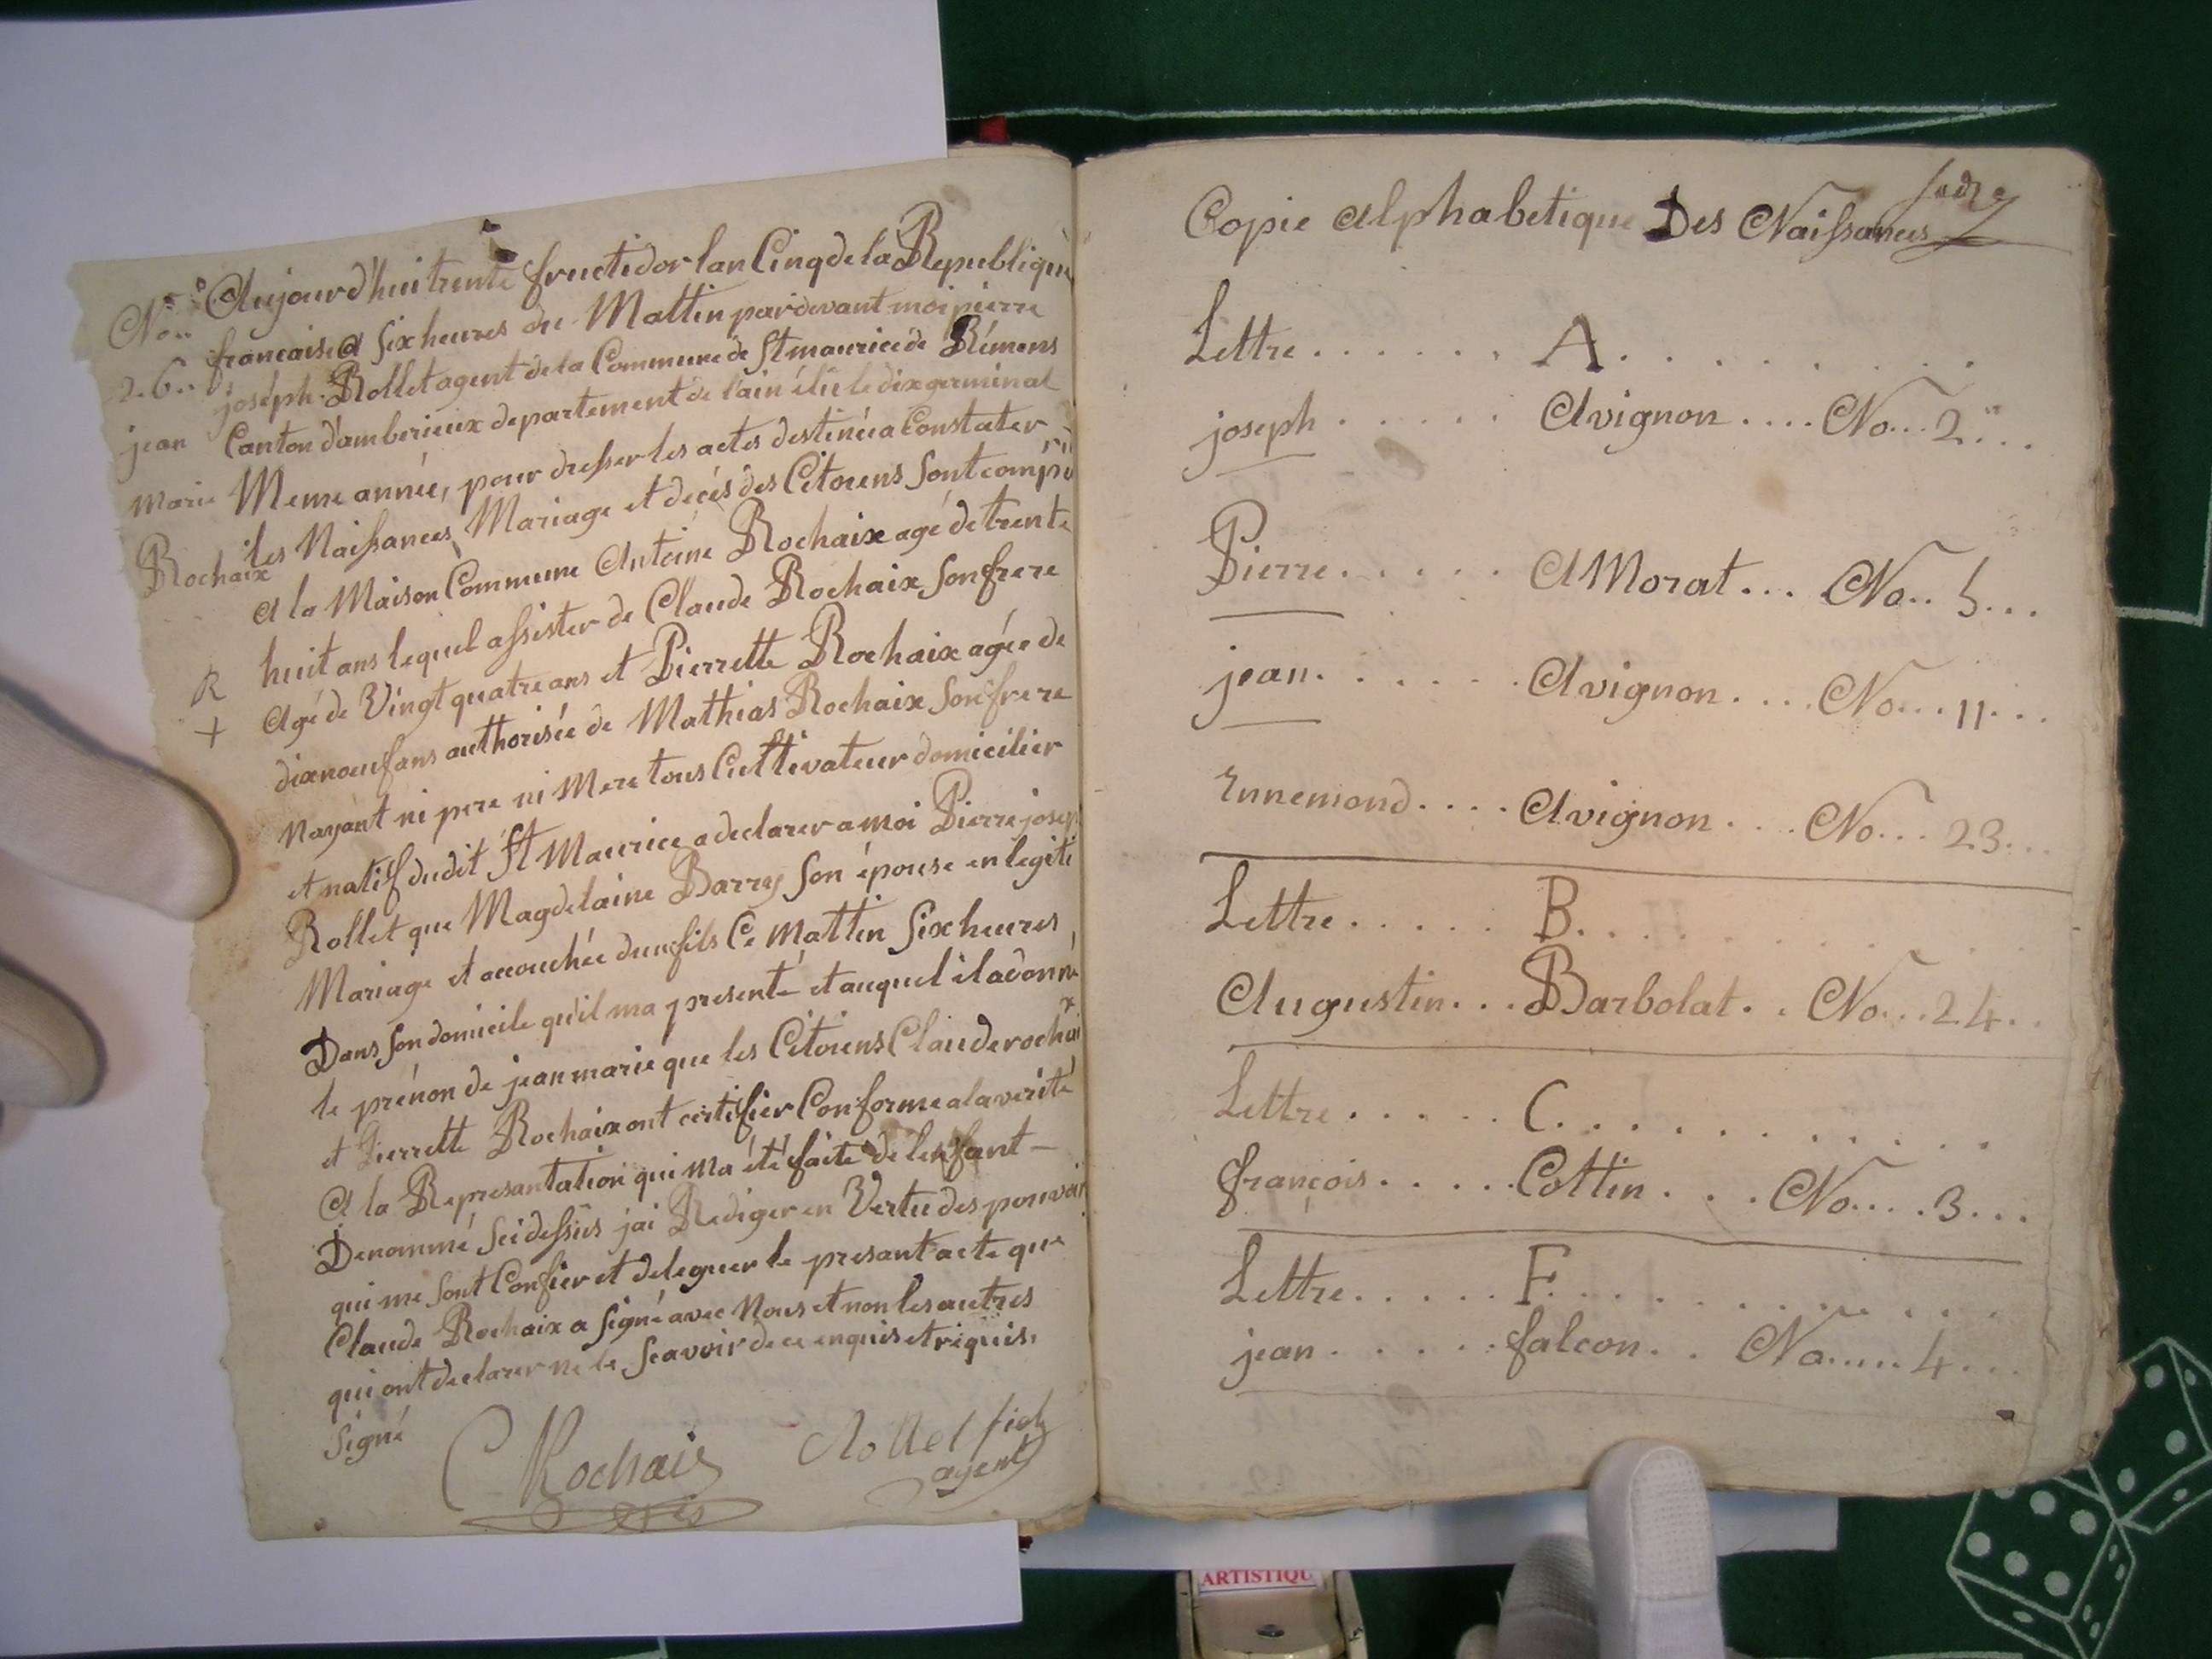 No..
26..
jean
marie
Rochaix
R
+
Aujourd'hui trente fructidor lan Cinq de la Republique
francaise a six heures du Mattin pardevant moi pierre
joséph Rollet agent de la Commune de St maurice de Rémens
Canton d'amberieux departement de l'ain élu le dix germinal
Meme année, pour dresser les actes destinéa Constater
les Naissances, Mariage et décés des Citoiens sont comparu
a la Maison Commune Antoine Rochaix agé de trente
huit ans lequel assister de Claude Rochaix son frere
agé de Vingt quatre ans et Pierrette Rochaix agée de
dixneuf ans authorisée de Mathias Rochaix son frere
nayant ni pere ni Mere tous Cultivateur domicilier
et natif dudit St Maurice a declarer a moi Pierre josep
Rollet que Magdelaine Barry son épouse en legiti
Mariage et accouchée dun fils Ce Mattin six heures
Dans son domicile qu'il ma presenté et auquel il a donné
le prénon de jean marie que les Citoiens Claude rochaix
et Pierrette Rochaix ont certifier Conforme a la verité
A la Represantation qui Ma été faite de lenfant —
Denommé sci dessus jai Rediger en Vertu des pouvoir
qui me sont Confier et deleguer le presant acte que
Claude Rochaix a signé avec Nous et non les autres
qui ont declarer ne le scavoir de ce enquis et riquis.
Signé
C Rochaix
Rollet
agent
Copie Alphabetique Des Naissances
Lettre . . . . . . . A . . . . . . . . .
joseph . . . . . . Avignon .... No... 2...
Pierre . . . . . . AMorat ... No.. 5...
jean . . . . . . Avignon .... No... 11...
Ennemond .... Avignon .... No... 23...
Lettre . . . . . B . . . . . . . . .
Augustin ... Barbolat .. No... 24..
Lettre . . . . . C . . . . . . . . .
françois ..... Cottin ... No.... 3...
Lettre . . . . . F . . . . . . . . .
jean ...... falcon .. No..... 4...
ARTISTIQU